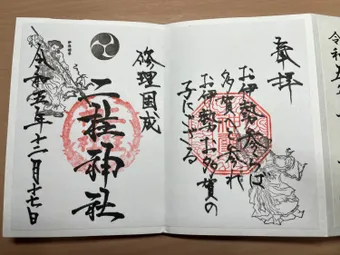 奉拝
お伊勢参らば
お多賀へ参れ
お伊勢お多賀の
子でござる
修理固成
二柱神社
令和五年十二月十七日